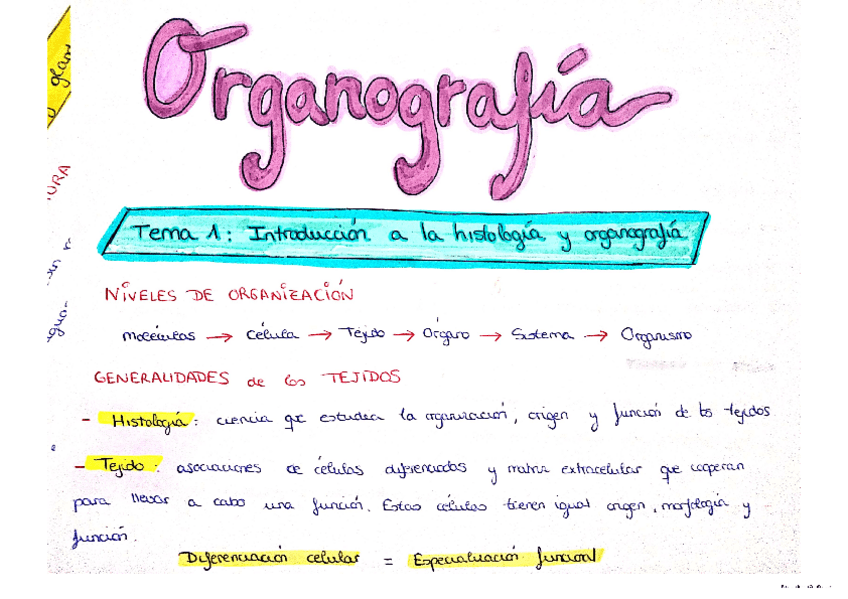 Organografía
Tema 1: Introducción a la histología y organografía
NIVELES DE ORGANIZACIÓN
moléculas → célula → Tejido → Órgano → Sistema → Organismo
GENERALIDADES de los TEJIDOS
- Histología: ciencia que estudia la organización, origen y función de los tejidos
- Tejido: asociaciones de células diferenciadas y matriz extracelular que cooperan
para llevar a cabo una función. Estas células tienen igual origen, morfología y
función.
Diferenciación celular = Especialización funcional